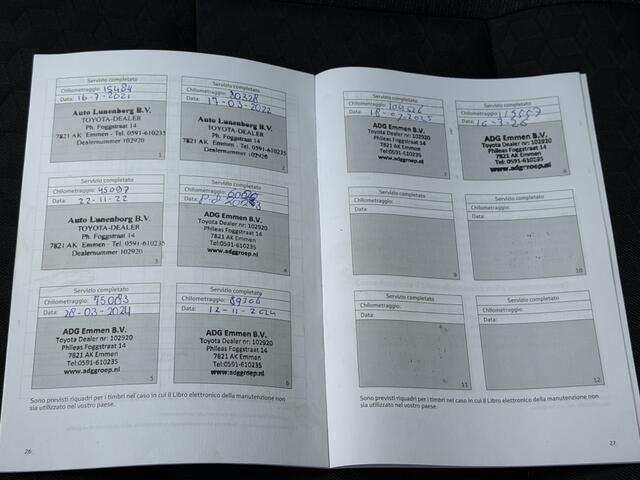 Servizio completato
Chilometraggio: 15484
Data: 16-7-2021
Auto Lunenborg B.V.
TOYOTA-DEALER
Ph. Foggstraat 14
7821 AK Emmen - Tel. 0591-610235
Dealernummer 102920
1
Servizio completato
Chilometraggio: 30328
Data: 17-03-2022
Auto Lunenborg B.V.
TOYOTA-DEALER
Ph. Foggstraat 14
7821 AK Emmen - Tel. 0591-610235
Dealernummer 102920
2
Servizio completato
Chilometraggio: 45097
Data: 22-11-22
Auto Lunenborg B.V.
TOYOTA-DEALER
Ph. Foggstraat 14
7821 AK Emmen - Tel. 0591-610235
Dealernummer 102920
3
Servizio completato
Chilometraggio:
Data:
ADG Emmen B.V.
Toyota Dealer nr: 102920
Phileas Foggstraat 14
7821 AK Emmen
Tel:0591-610235
www.adggroep.nl
4
Servizio completato
Chilometraggio: 75083
Data: 28-03-2024
ADG Emmen B.V.
Toyota Dealer nr: 102920
Phileas Foggstraat 14
7821 AK Emmen
Tel:0591-610235
www.adggroep.nl
5
Servizio completato
Chilometraggio: 89306
Data: 12-11-2024
ADG Emmen B.V.
Toyota Dealer nr: 102920
Phileas Foggstraat 14
7821 AK Emmen
Tel:0591-610235
www.adggroep.nl
6
Sono previsti riquadri per i timbri nel caso in cui il Libro elettronico della manutenzione non
sia utilizzato nel vostro paese.
26
Servizio completato
Chilometraggio: 104526
Data: 18-07-2025
ADG Emmen B.V.
Toyota Dealer nr: 102920
Phileas Foggstraat 14
7821 AK Emmen
Tel:0591-610235
www.adggroep.nl
7
Servizio completato
Chilometraggio:
Data:
ADG Emmen B.V.
Toyota Dealer nr: 102920
Phileas Foggstraat 14
7821 AK Emmen
Tel:0591-610235
www.adggroep.nl
8
Servizio completato
Chilometraggio:
Data:
9
Servizio completato
Chilometraggio:
Data:
10
Servizio completato
Chilometraggio:
Data:
11
Servizio completato
Chilometraggio:
Data:
12
Sono previsti riquadri per i timbri nel caso in cui il Libro elettronico della manutenzione non
sia utilizzato nel vostro paese.
27